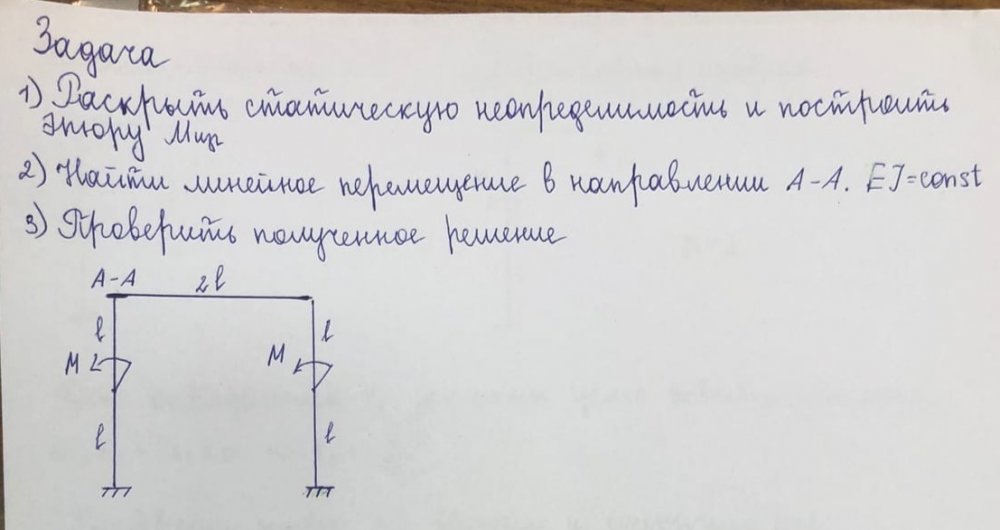 Задача
1) Раскрыть статическую неопределимость и построить
эпюру Mизг
2) Найти линейное перемещение в направлении A-A. EJ=const
3) Проверить полученное решение
A-A 2l
l l
M M
l l